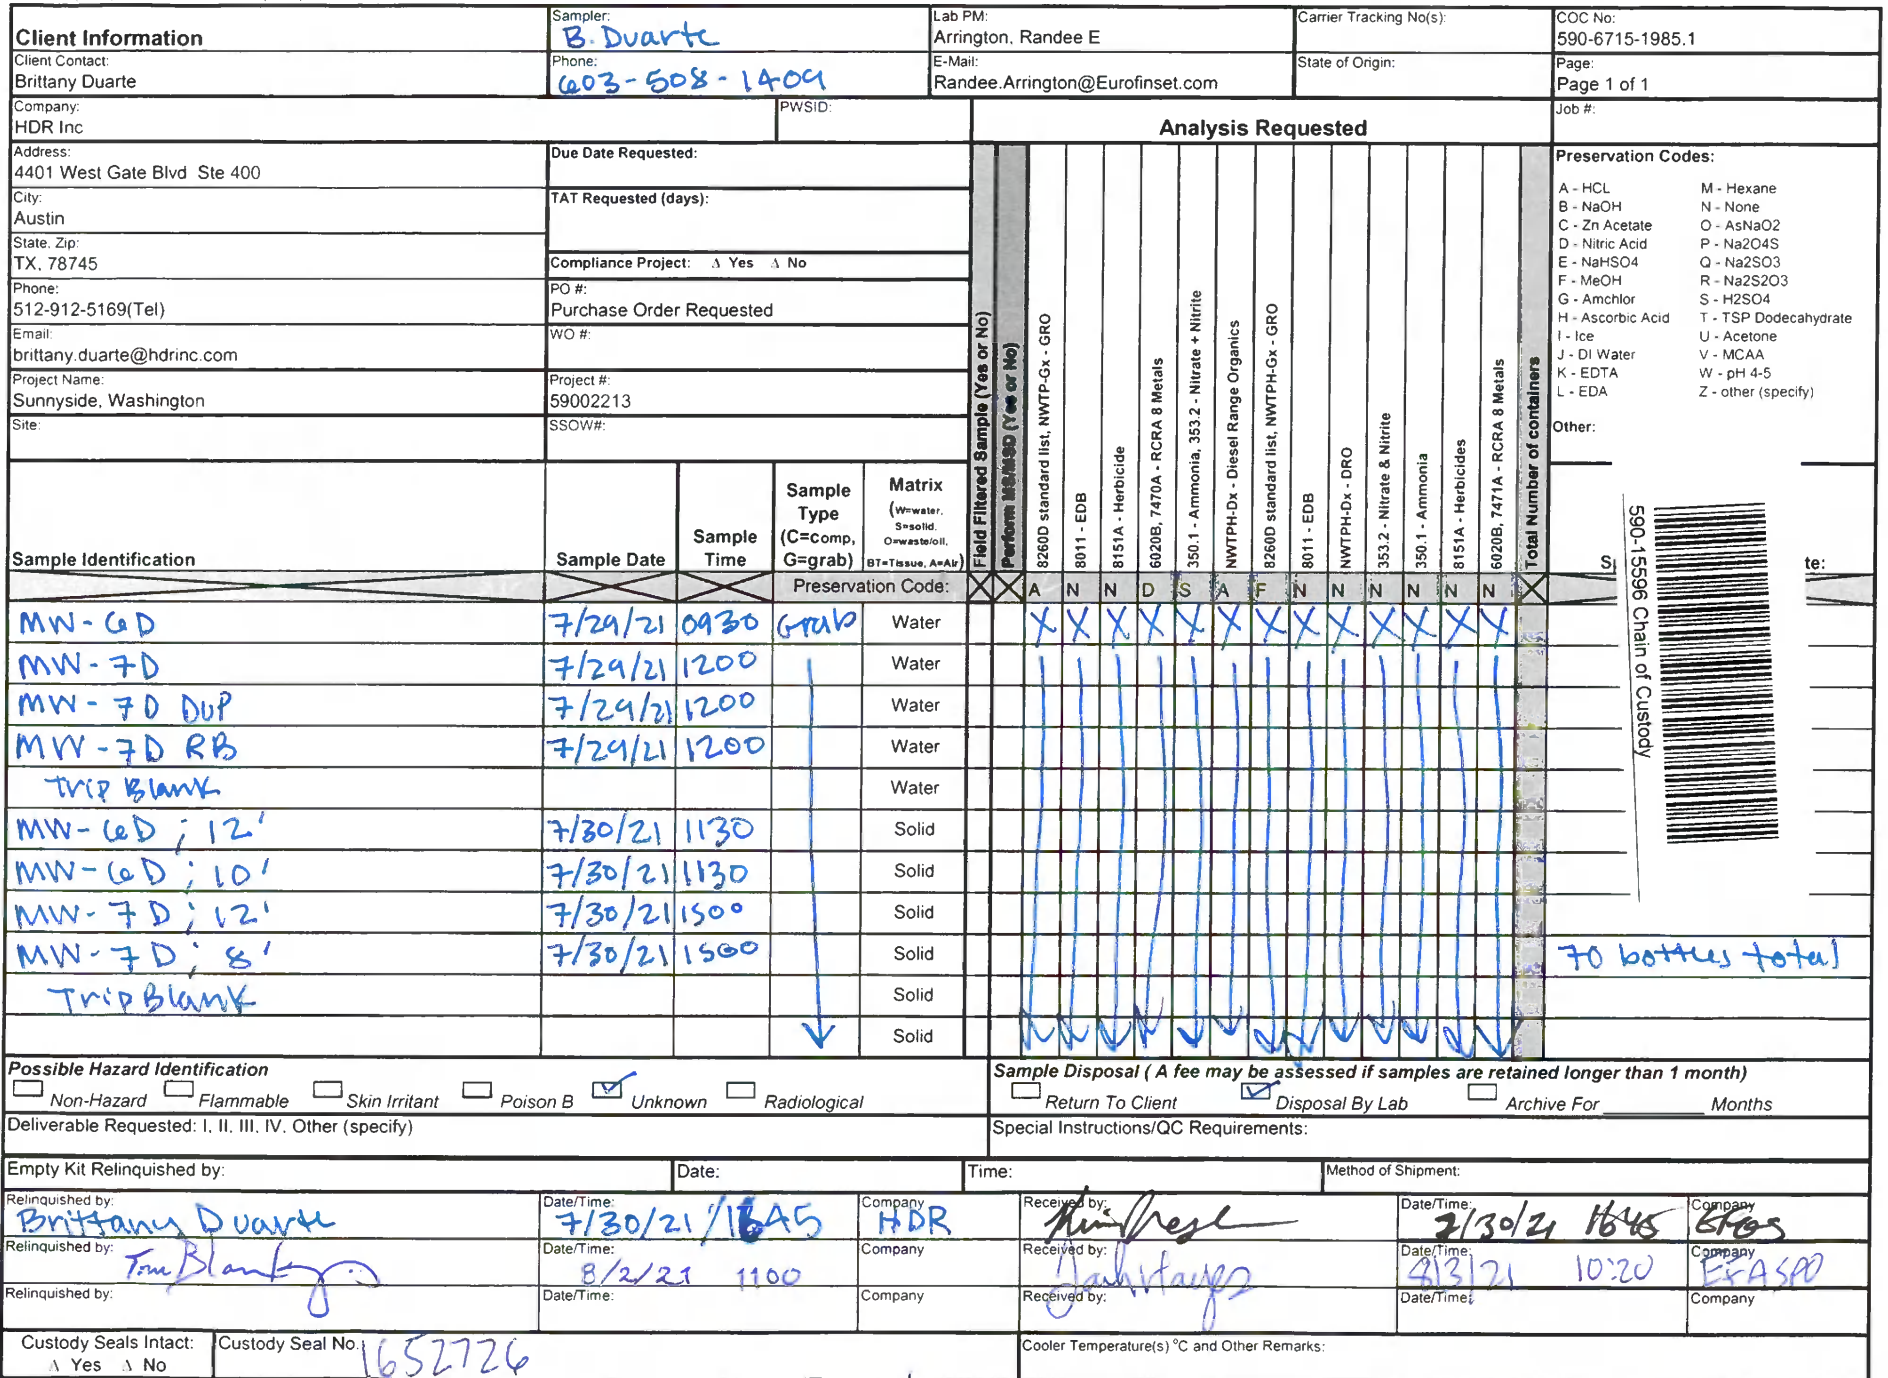 Client Information
Sampler:
B. Duarte
Lab PM:
Arrington, Randee E
Carrier Tracking No(s):
COC No:
590-6715-1985.1
Client Contact:
Brittany Duarte
Phone:
603-508-1409
E-Mail:
Randee.Arrington@Eurofinset.com
State of Origin:
Page:
Page 1 of 1
Company:
HDR Inc
PWSID:
Analysis Requested
Job #:
Address:
4401 West Gate Blvd Ste 400
Due Date Requested:
City:
Austin
TAT Requested (days):
State, Zip:
TX, 78745
Compliance Project: Δ Yes Δ No
Phone:
512-912-5169(Tel)
PO #:
Purchase Order Requested
Email:
brittany.duarte@hdrinc.com
WO #:
Project Name:
Sunnyside, Washington
Project #:
59002213
Site:
SSOW#:
Preservation Codes:
A - HCL M - Hexane
B - NaOH N - None
C - Zn Acetate O - AsNaO2
D - Nitric Acid P - Na2O4S
E - NaHSO4 Q - Na2SO3
F - MeOH R - Na2S2O3
G - Amchlor S - H2SO4
H - Ascorbic Acid T - TSP Dodecahydrate
I - Ice U - Acetone
J - DI Water V - MCAA
K - EDTA W - pH 4-5
L - EDA Z - other (specify)
Other:
Sample Identification
Sample Date
Sample Time
Sample Type (C=comp, G=grab)
Matrix (W=water, S=solid, O=waste/oil, BT=Tissue, A=Air)
Field Filtered Sample (Yes or No)
Perform MS/MSD (Yes or No)
8260D standard list, NWTP-Gx - GRO
8011 - EDB
8151A - Herbicide
6020B, 7470A - RCRA 8 Metals
350.1 - Ammonia, 353.2 - Nitrate + Nitrite
NWTPH-Dx - Diesel Range Organics
8260D standard list, NWTPH-Gx - GRO
8011 - EDB
NWTPH-Dx - DRO
353.2 - Nitrate & Nitrite
350.1 - Ammonia
8151A - Herbicides
6020B, 7471A - RCRA 8 Metals
Total Number of containers
S te:
590-15596 Chain of Custody
Preservation Code: X X A N N D S A F N N N N N N X
MW-6D 7/29/21 0930 Grab Water X X X X X X X X X X X X X
MW-7D 7/29/21 1200 Water
MW-7D DUP 7/29/21 1200 Water
MW-7D RB 7/29/21 1200 Water
Trip Blank Water
MW-6D ; 12' 7/30/21 1130 Solid
MW-6D ; 10' 7/30/21 1130 Solid
MW-7D ; 12' 7/30/21 1500 Solid
MW-7D ; 8' 7/30/21 1500 Solid 70 bottles total
Trip Blank Solid
Solid
Possible Hazard Identification
Non-Hazard Flammable Skin Irritant Poison B Unknown Radiological
Sample Disposal ( A fee may be assessed if samples are retained longer than 1 month)
Return To Client Disposal By Lab Archive For Months
Deliverable Requested: I, II, III, IV, Other (specify)
Special Instructions/QC Requirements:
Empty Kit Relinquished by: Date: Time: Method of Shipment:
Relinquished by:
Brittany Duarte
Date/Time:
7/30/21 /1645
Company
HDR
Received by:
Date/Time:
7/30/21 1645
Company
Relinquished by:
Date/Time:
8/2/21 1100
Company
Received by:
Date/Time:
8/3/21 10:20
Company
EFASPO
Relinquished by:
Date/Time:
Company
Received by:
Date/Time:
Company
Custody Seals Intact:
Δ Yes Δ No
Custody Seal No.:
1652726
Cooler Temperature(s) °C and Other Remarks: